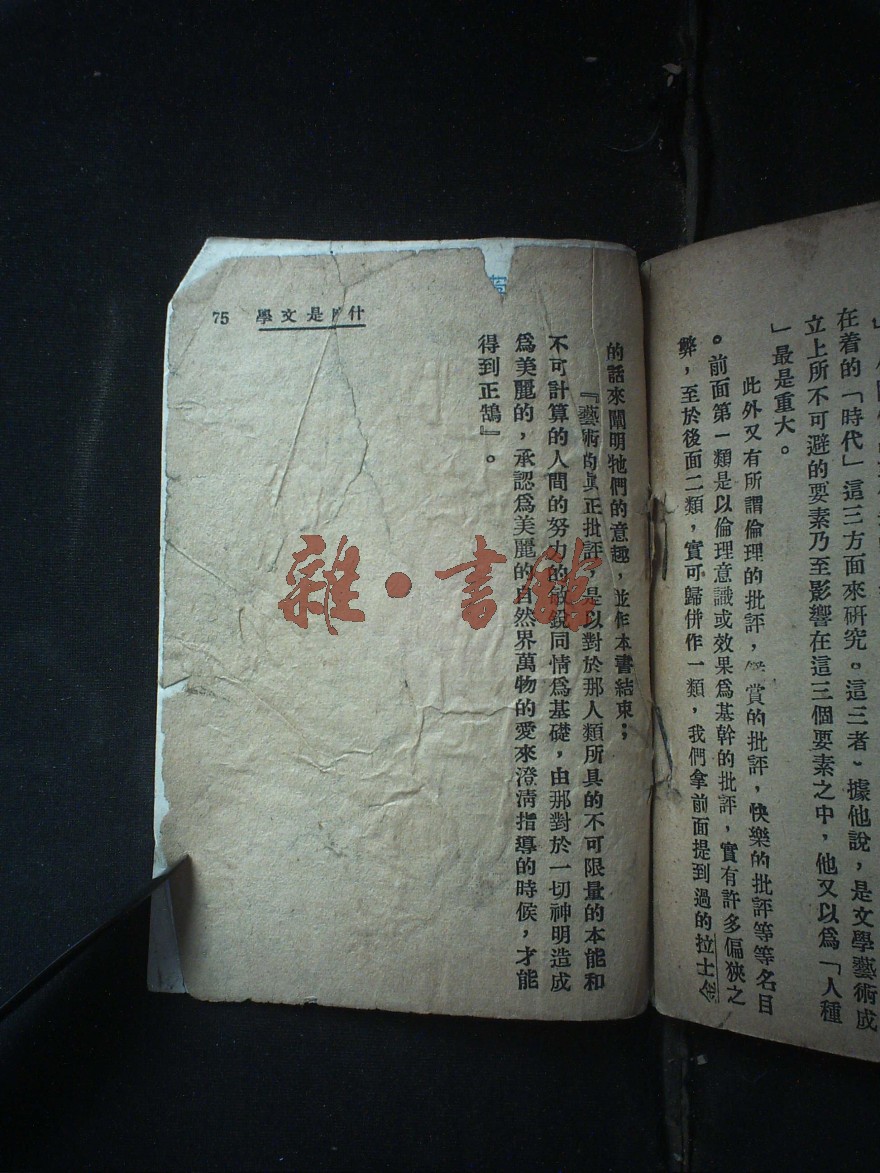 在着的「時代」這三方面來研究。這三者、據他說，是文學藝術成
立上所不可避的要素乃至影響在這三個要素之中，他又以爲「人種
」最是重大。
此外又有所謂倫理的批評，賞的批評，快樂的批評等等名目
。前面第一類是以倫理意識或效果爲基幹的批評，實有許多偏狹之
弊，至於後面二類，實可歸併作一類，我們拿前面提到過的拉士金
什是文學 75
的話來闡明牠們的意趣，並作本書結束；
『藝術的眞正批評，是以對於那人類所具的不可限量的本能和
不可計算的人間的努力的敏銳同情爲基礎，由那對於一切神明造成
爲美麗的，承認爲美麗的自然界萬物的愛來澄清指導的時候，才能
得到正鵠』。
雜·書館